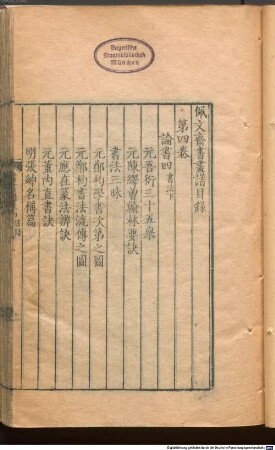 Bayerische
Staatsbibliothek
München
佩文齋書畫譜目錄
第四卷
論書四 書法下
元吾衍三十五舉
元陳繹曾翰林要訣
書法三昧
元鄭杓學書次第之圖
元鄭杓書法流傳之圖
元應在篆法辨訣
元董內直書訣
明張紳名稱篇
目錄